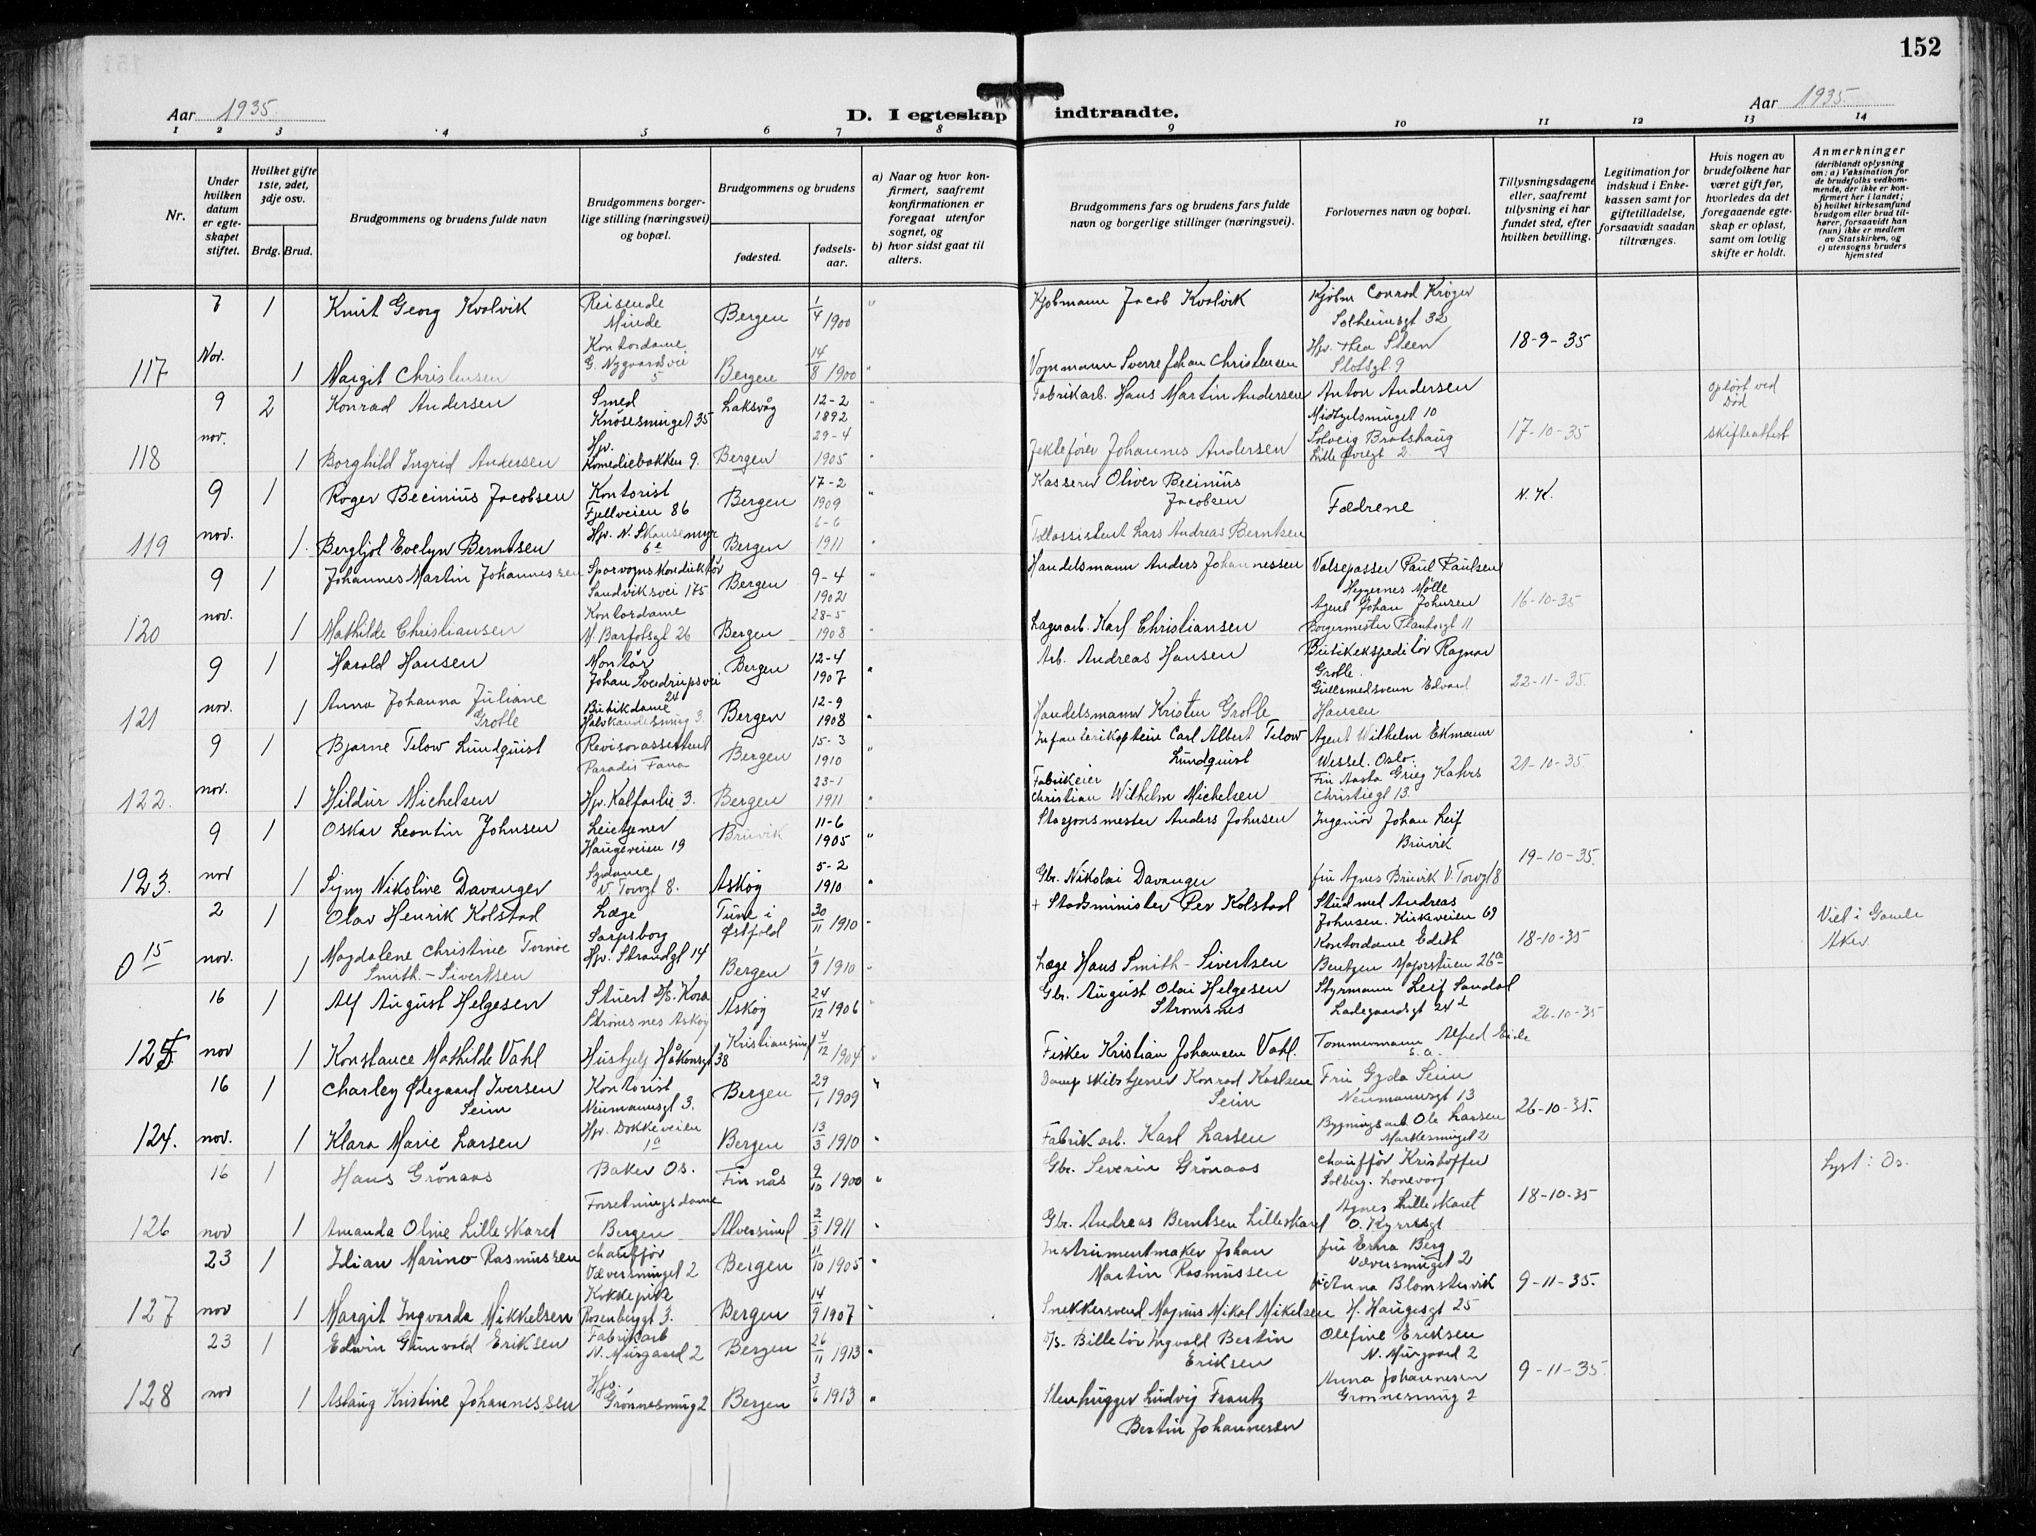 152
Aar 1935.
Aar 1935.
D. I egteskap indtraadte.
1 2 3 4 5 6 7 8 9 10 11 12 13 14
Nr.
Under hvilken datum er egteskapet stiftet.
Hvilket gifte 1ste, 2det, 3dje osv.
Brdg. Brud.
Brudgommens og brudens fulde navn
Brudgommens borgerlige stilling (næringsvei) og bopæl.
Brudgommens og brudens
fødested.
fødselsaar.
a) Naar og hvor konfirmert, saafremt konfirmationen er foregaat utenfor sognet, og
b) hvor sidst gaat til alters.
Brudgommens fars og brudens fars fulde navn og borgerlige stillinger (næringsvei).
Forlovernes navn og bopæl.
Tillysningsdagene eller, saafremt tillysning ei har fundet sted, efter hvilken bevilling.
Legitimation for indskud i Enkekassen samt for giftetilladelse, forsaavidt saadan tiltrænges.
Hvis nogen av brudefolkene har været gift før, hvorledes da det foregaaende egteskap er opløst, samt om lovlig skifte er holdt.
Anmerkninger
(deriblandt oplysning om: a) Vaksination for de brudefolks vedkommende, der ikke er konfirmert her i landet; b) hvilket kirkesamfund brudgom eller brud tilhører, forsaavidt han (hun) ikke er medlem av Statskirken, og c) utensogns bruders hjemsted
7 1 Knut Georg Kvalvik Reisende Minde Bergen 1/4 1900 " Kjøbmann Jacob Kvalvik Kjøbm Conrad Krøger Solheimsgt 32
117 Nov. 1 Margit Christensen Kontordame G. Nygaardsvei 5 Bergen 14/8 1900 " Sverre Johan Christensen Hjv. Thea Steen Slotsgt. 9 18-9-35
9 2 Konrad Andersen Smed Knøsesmuget 35 Laksvåg 12-2 1892 " Fabrikarb. Hans Martin Andersen Anton Andersen Midtgelsmuget 10 opløst ved Død
118 nov. 1 Borghild Ingrid Andersen Hjv. Komediebakken 9. Bergen 29-4 1905 " Jektefører Johannes Andersen Solveig Brotshaug Lille 2 17-10-35 skifteattest
9 1 Roger Becinius Jacobsen Kontorist Fjellveien 86 Bergen 17-2 1909 " Kasserer Oliver Becinius Jacobsen Fædrene N. K.
119 nov. 1. Bergljot Evelyn Berntsen Hjv. N. Skansemyr 6e Bergen 6-6 1911 " Tollassistent Lars Andreas Berntsen
9 1 Johannes Martin Johannessen Sporvognskonduktør Sandviksvei 175 Bergen 9-4 1902 " Handelsmann Anders Johannessen Valsepasser Paul Paulsen Heggernes Mølle
120 nov. 1 Mathilde Christiansen Kontordame M. Barfotsgt 26 Bergen 28-5 1908 " Lagerarb. Karl Christiansen Agent Johan Johnsen Borgermester Platousgt 11 16-10-35
9 1 Harald Hansen Montør Johan Sverdrupsvei 24 Bergen 12-4 1907 " Arb. Andreas Hansen Butikekspeditør Ragnar Grotle.
121 nov. 1 Anna Johanna Juliane Grotle Butikdame Halvkandesmug 3. Bergen 12-9 1908 " Handelsmann Kristen Grotle Gullsmedsvenn Edvard Hansen 22-11-35.
9 1 Bjarne Telow Lundquist Revisorassistent Paradis Fana Bergen 15-3 1910 " Infanterikaptein Carl Albert Telow Lundquist Agent Wilhelm Ekmann Wessel. Oslo.
122. nov. 1 Hildur Michelsen Hjv. Kalfarlie 3. Bergen 23-1 1911 " Fabrikeier Christian Wilhelm Michelsen Fru Aasta Grieg Kahrs Christiegt 13. 21-10-35.
9 1 Oskar Leontin Johnsen Leietjener Haugeveien 19 Bruvik 11-6 1905 " Stasjonsmester Anders Johnsen Ingeniør Johan Leif Bruvik
123. nov 1 Signy Nikoline Davanger Sydame V. Torvgt 8. Askøy 5-2 1910 " Gbr. Nikolai Davanger fru Agnes Bruvik V. Torvgt 8 19-10-35.
2 1 Olav Henrik Kolstad Læge Sarpsborg Tune i Østfold 30/11 1910 " + Statsminister Per Kolstad Stud med Andreas Johnsen. Kirkeveien 69 Viet i Gamle Aker
0 15 nov. 1 Magdalene Christine Tornöe Smith-Sivertsen Hjv. Strandgt 14 Bergen 1/9 1910 " Læge Hans Smith-Sivertsen Kontordame Edith Bentzen Majorstuen 26a 18-10-35
16 1 Alf August Helgesen Stuert Strømsnes Askøy Askøy 24/12 1906 " Gbr. August Olai Helgesen Strømsnes Styrmann Leif Sandal Ladegaardsgt 24d
125 nov 1 Konstance Mathilde Vahl Håkonsgt 38 Kristiansund 4/12 1904 " Fisker Kristian Johansen Vahl. Tømmermann Alfred Eide s.a. 26-10-35
16 1 Charley Ødegaard Iversen Seim Kontorist Neumannsgt 3. Bergen 29/1 1909 " Dampskibstjener Konrad Karlsen Seim Fru Gyda Seim Neumannsgt 13
124. nov. 1 Klara Marie Larsen Hjv. Dokkeveien 1a Bergen 13/3 1910 " Fabrikarb. Karl Larsen Bygningsarb Ole Larsen Markesmuget 2 26-10-35.
16 1 Hans Grönaas Baker Os. Finnås 9/10 1900 " Gbr. Severin Grönaas chauffør Kristoffer Solberg. Lonevåg Lyst: Os.
126 nov 1 Amanda Oline Lilleskaret Forretningsdame Bergen Alversund 2/3 1911 " Gbr. Andreas Berntsen Lilleskaret Agnes Lilleskaret O. Kyrresgt 18-10-35
23 1 Marino Rasmussen chauffør Væversmuget 2 Bergen 11/10 1905 " Instrumentmaker Johan Martin Rasmussen fru Erna Berg Væversmuget 2
127 nov 1 Margit Ingvarda Mikkelsen Kokkepike Rosenbergt 3. Bergen 14/9 1907 " Snekkersvend Magnus Mikal Mikelsen Anna Blomstervik H. Haugesgt 25 9-11-35.
23 1 Edwin Gunvald Eriksen Fabrikarb N. Murgaard 2 Bergen 26/11 1913 " Billetør Ingvald Bertin Eriksen Olefine Eriksen N. Murgaard 2
128 nov 1 Aslaug Kristine Johannessen Hjv. Grønnesmug 2 Bergen 3/6 1913 " Stenhugger Ludvig Frantz Bertin Johannesen Anna Johannesen Grønnesmug 2 9-11-35.